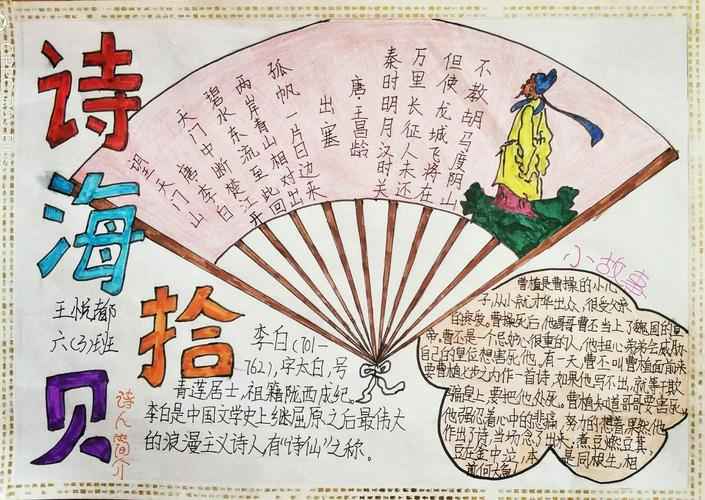 诗海拾贝
王悦都
六(3)班
出塞
唐·王昌龄
秦时明月汉时关
万里长征人未还
但使龙城飞将在
不教胡马度阴山
望天门山
唐 李白
天门中断楚江开
碧水东流至此回
两岸青山相对出
孤帆一片日边来
诗人简介
李白(701—
762),字太白,号
青莲居士,祖籍陇西成纪。
李白是中国文学史上继屈原之后最伟大
的浪漫主义诗人有“诗仙”之称。
小故事
曹植是曹操的小儿
子,从小就才华出众,很受父亲
的疼爱。曹操死后他哥哥曹丕当上了魏国的皇
帝。曹丕是一个忌妒心很重的人,他担心弟弟会威胁
自己的皇位想害死他。有一天,曹丕叫曹植面前来
要曹植七步之内作一首诗,如果他写不出,就等于欺
骗皇上,要把他处死。曹植知道哥哥要害
他强忍着心中的悲痛,努力的想着果然他
作出了诗,当场念了出来,煮豆燃豆萁,
豆在釜中泣,本是同根生,相
煎何太急